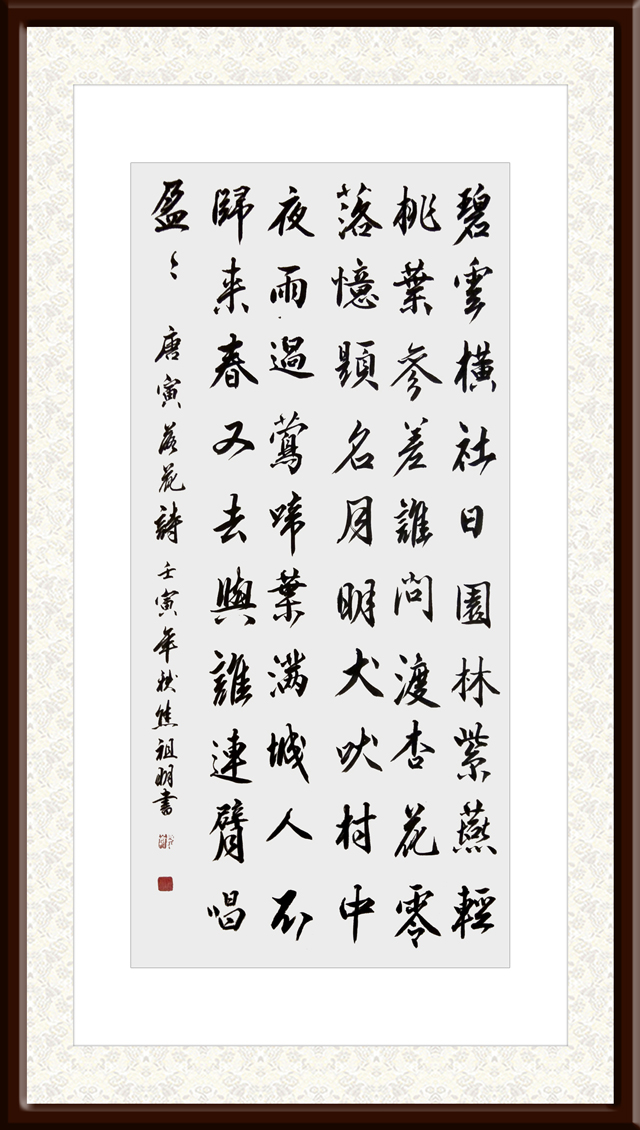 碧雲橫社日園林紫燕輕
桃葉參差誰問渡杏花零
落憶題名月明犬吠村中
夜雨過鶯啼葉滿城人不
歸来春又去與誰連臂唱
盈〻 唐寅落花詩 壬寅年秋祖明書